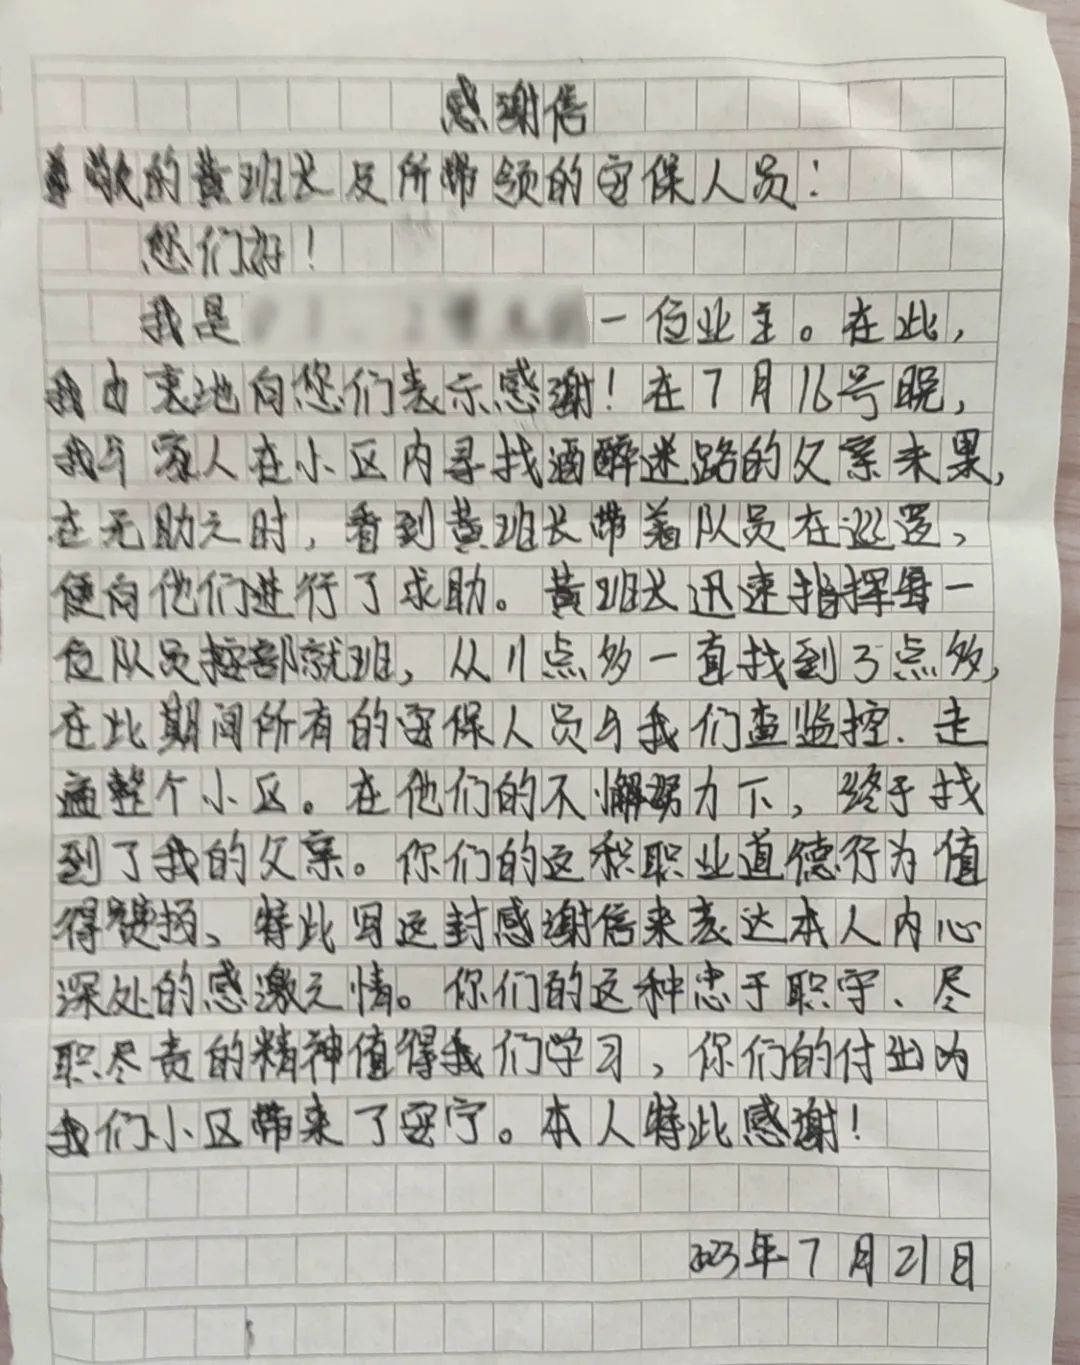 感谢信
尊敬的黄班长及所带领的安保人员：
您们好！
我是 一位业主。在此，
我由衷地向您们表示感谢！在7月16号晚，
我与家人在小区内寻找酒醉迷路的父亲未果，
在无助之时，看到黄班长带着队员在巡逻，
便向他们进行了求助。黄班长迅速指挥每一
位队员 部就班，从11点多一直找到3点多，
在此期间所有的安保人员与我们查监控、走
遍整个小区。在他们的不懈努力下，终于找
到了我的父亲。你们的这种职业道德行为值
得赞扬、特此写这封感谢信来表达本人内心
深处的感激之情。你们的这种忠于职守、尽
职尽责的精神值得我们学习，你们的付出为
我们小区带来了安宁。本人特此感谢！
2023年7月21日